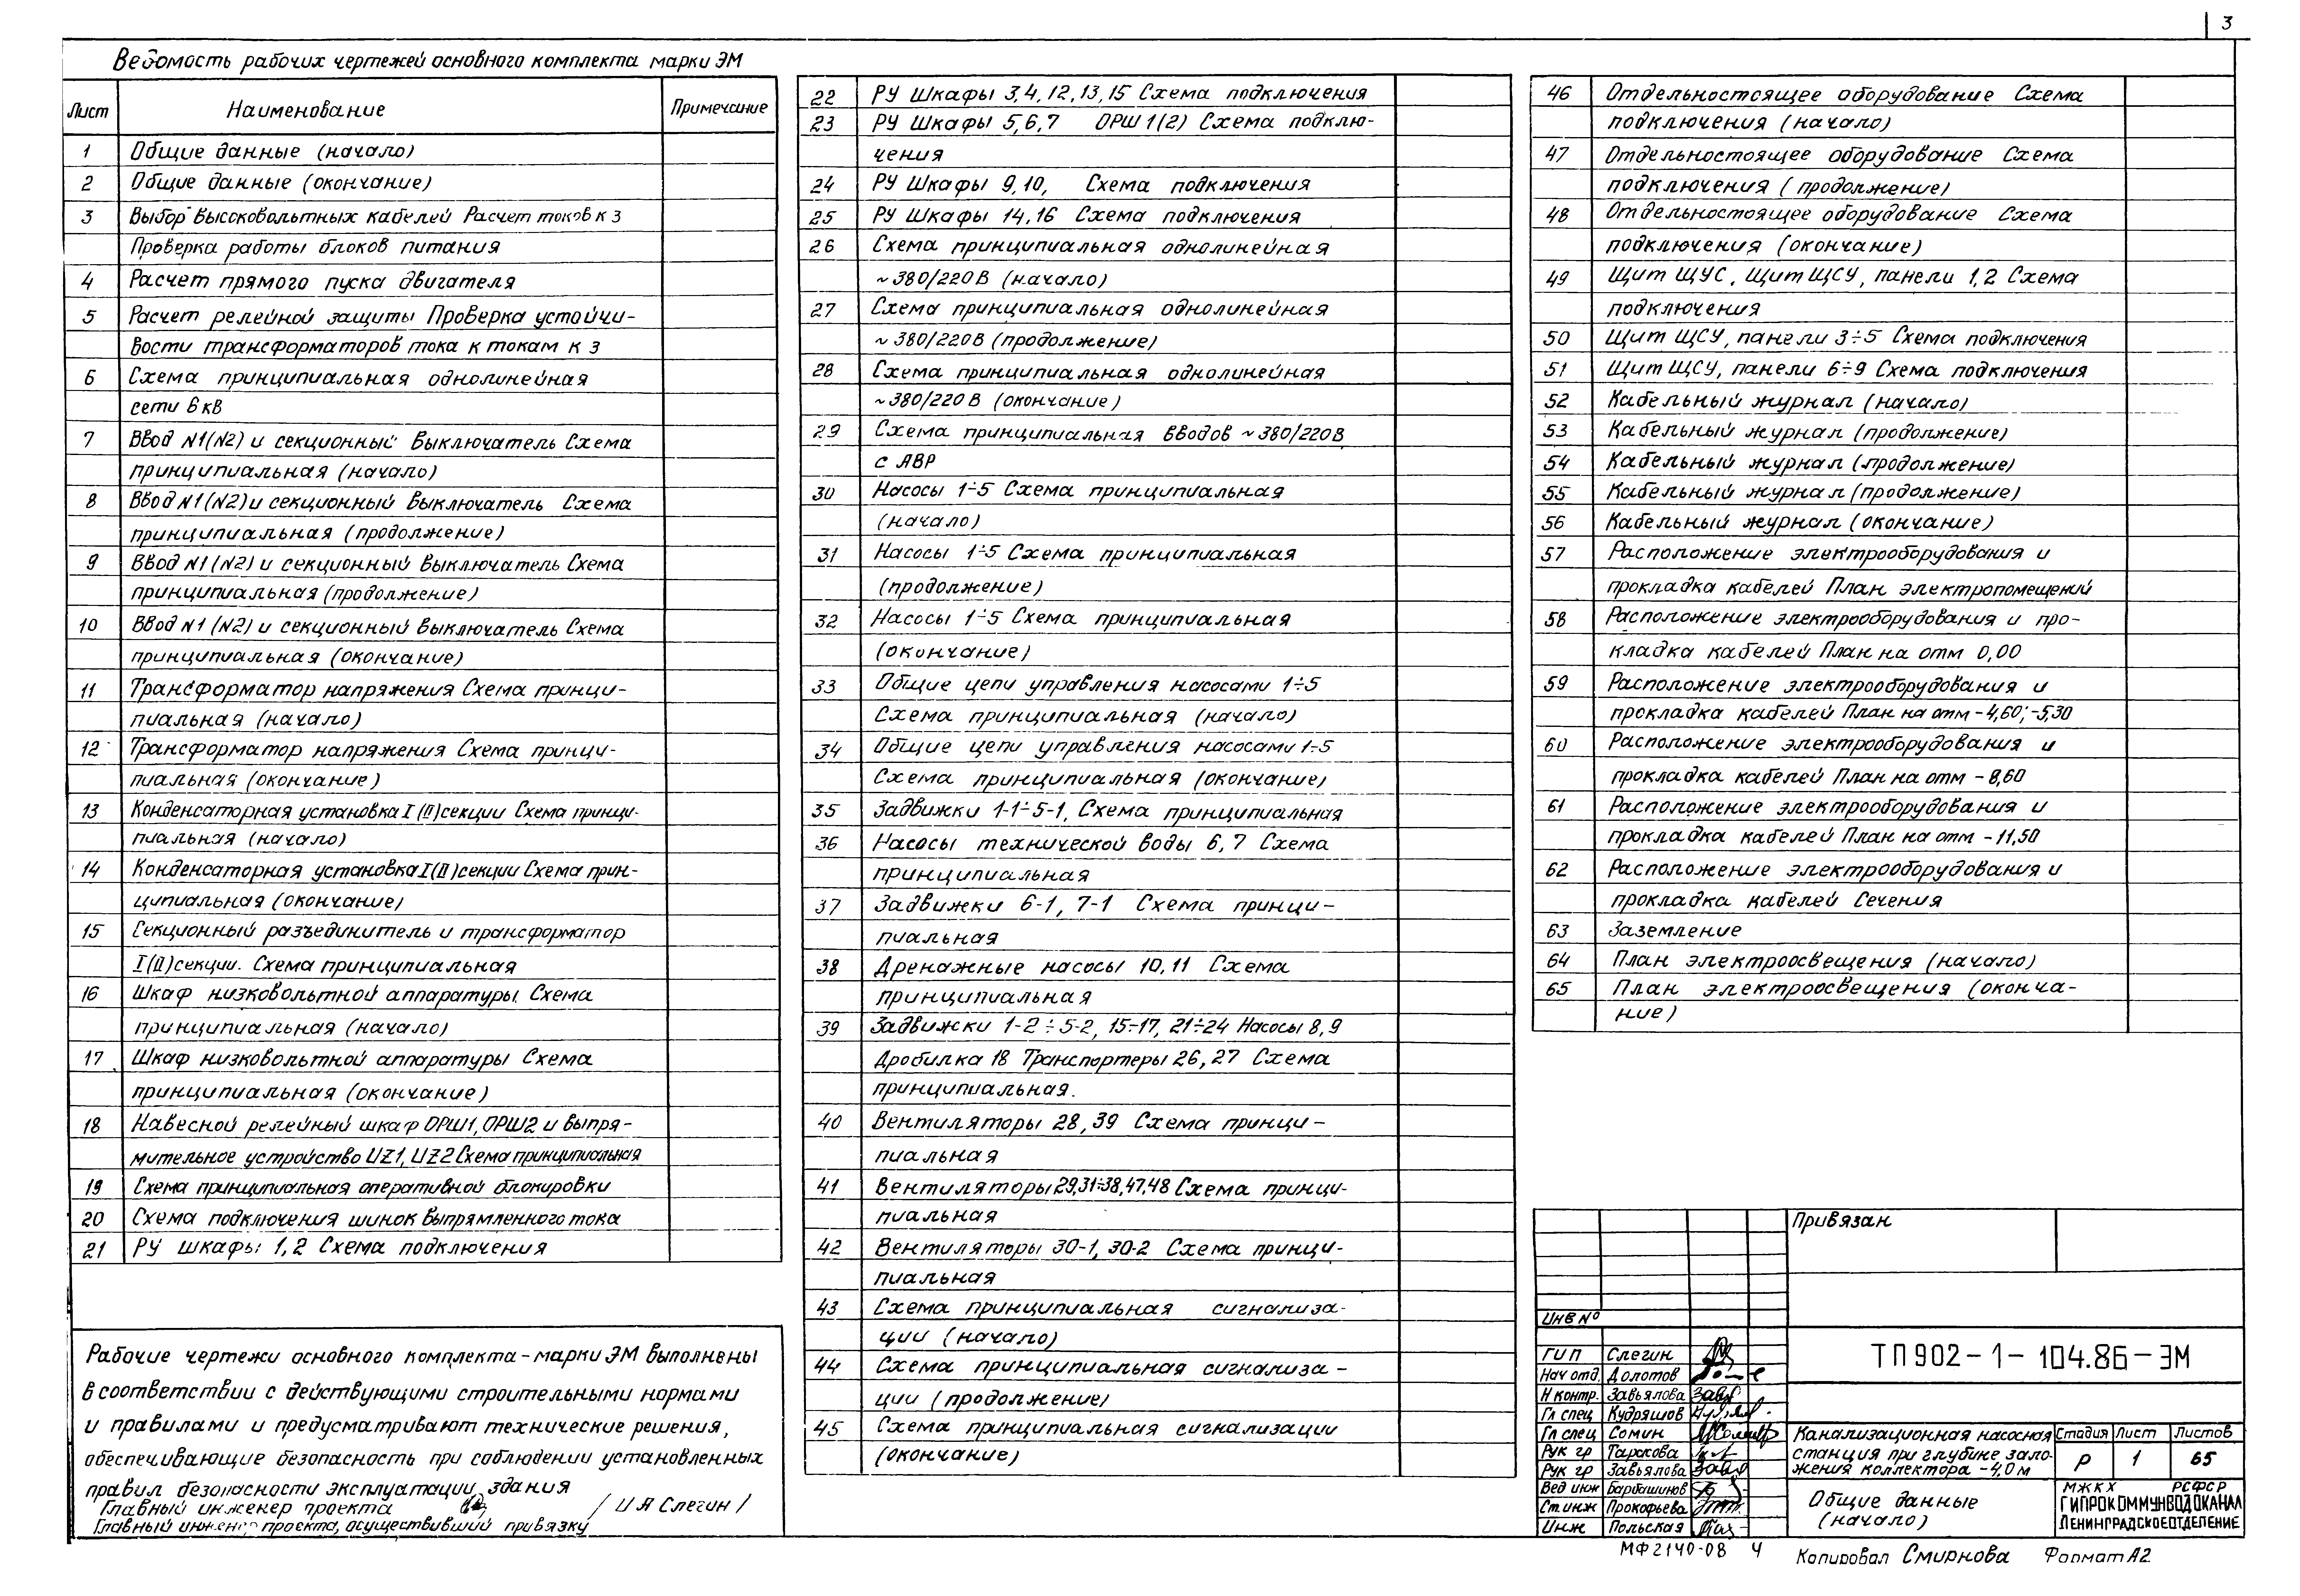 3
Ведомость рабочих чертежей основного комплекта марки ЭМ
Лист Наименование Примечание
1 Общие данные (начало)
2 Общие данные (окончание)
3 Выбор высоковольтных кабелей Расчет токов к з
Проверка работы блоков питания
4 Расчет прямого пуска двигателя
5 Расчет релейной защиты Проверка устойчи-
вости трансформаторов тока к токам к з
6 Схема принципиальная однолинейная
сети 6 кВ
7 Ввод N1(N2) и секционный выключатель Схема
принципиальная (начало)
8 Ввод N1(N2) и секционный выключатель Схема
принципиальная (продолжение)
9 Ввод N1(N2) и секционный выключатель Схема
принципиальная (продолжение)
10 Ввод N1 (N2) и секционный выключатель Схема
принципиальная (окончание)
11 Трансформатор напряжения Схема принци-
пиальная (начало)
12 Трансформатор напряжения Схема принци-
пиальная (окончание)
13 Конденсаторная установка I (II) секции Схема принци-
пиальная (начало)
14 Конденсаторная установка I(II) секции Схема прин-
ципиальная (окончание)
15 Секционный разъединитель и трансформатор
I(II) секции. Схема принципиальная
16 Шкаф низковольтной аппаратуры. Схема
принципиальная (начало)
17 Шкаф низковольтной аппаратуры Схема
принципиальная (окончание)
18 Навесной релейный шкаф ОРШ1, ОРШ2 и выпря-
мительное устройство UZ1, UZ2 Схема принципиальная
19 Схема принципиальная оперативной блокировки
20 Схема подключения шинок выпрямленного тока
21 РУ шкафы 1, 2 Схема подключения
Рабочие чертежи основного комплекта - марки ЭМ выполнены
в соответствии с действующими строительными нормами
и правилами и предусматривают технические решения,
обеспечивающие безопасность при соблюдении установленных
правил безопасности эксплуатации здания
Главный инженер проекта / И А Слегин /
Главный инженер проекта, осуществивший привязку
22 РУ Шкафы 3, 4, 12, 13, 15 Схема подключения
23 РУ Шкафы 5, 6, 7 ОРШ 1(2) Схема подклю-
чения
24 РУ Шкафы 9, 10, Схема подключения
25 РУ Шкафы 14, 16 Схема подключения
26 Схема принципиальная однолинейная
~380/220 В (начало)
27 Схема принципиальная однолинейная
~380/220 В (продолжение)
28 Схема принципиальная однолинейная
~380/220 В (окончание)
29 Схема принципиальная вводов ~380/220 В
с АВР
30 Насосы 1÷5 Схема принципиальная
(начало)
31 Насосы 1÷5 Схема принципиальная
(продолжение)
32 Насосы 1÷5 Схема принципиальная
(окончание)
33 Общие цепи управления насосами 1÷5
Схема принципиальная (начало)
34 Общие цепи управления насосами 1÷5
Схема принципиальная (окончание)
35 Задвижки 1-1÷5-1, Схема принципиальная
36 Насосы технической воды 6, 7 Схема
принципиальная
37 Задвижки 6-1, 7-1 Схема принци-
пиальная
38 Дренажные насосы 10, 11 Схема
принципиальная
39 Задвижки 1-2÷5-2, 15÷17, 21÷24 Насосы 8, 9
Дробилка 18 Транспортеры 26, 27 Схема
принципиальная.
40 Вентиляторы 28, 39 Схема принци-
пиальная
41 Вентиляторы 29, 31÷38, 47, 48 Схема принци-
пиальная
42 Вентиляторы 30-1, 30-2 Схема принци-
пиальная
43 Схема принципиальная сигнализа-
ции (начало)
44 Схема принципиальная сигнализа-
ции (продолжение)
45 Схема принципиальная сигнализации
(окончание)
46 Отдельностоящее оборудование Схема
подключения (начало)
47 Отдельностоящее оборудование Схема
подключения (продолжение)
48 Отдельностоящее оборудование Схема
подключения (окончание)
49 Щит ЩУС, Щит ЩСУ, панели 1, 2 Схема
подключения
50 Щит ЩСУ, панели 3÷5 Схема подключения
51 Щит ЩСУ, панели 6÷9 Схема подключения
52 Кабельный журнал (начало)
53 Кабельный журнал (продолжение)
54 Кабельный журнал (продолжение)
55 Кабельный журнал (продолжение)
56 Кабельный журнал (окончание)
57 Расположение электрооборудования и
прокладка кабелей План электропомещений
58 Расположение электрооборудования и про-
кладка кабелей План на отм 0,00
59 Расположение электрооборудования и
прокладка кабелей План на отм -4,60; -5,30
60 Расположение электрооборудования и
прокладка кабелей План на отм -8,60
61 Расположение электрооборудования и
прокладка кабелей План на отм -11,50
62 Расположение электрооборудования и
прокладка кабелей Сечения
63 Заземление
64 План электроосвещения (начало)
65 План электроосвещения (оконча-
ние)
Привязан
Инв №
ТП 902-1-104.86-ЭМ
ГИП Слегин
Нач отд. Долотов
Н контр. Завьялова
Гл спец Кудряшов
Гл спец Сомин
Рук гр Тарасова
Рук гр Завьялова
Вед инж Барбашинов
Ст. инж Прокофьева
Инж Польская
Канализационная насосная
станция при глубине зало-
жения коллектора -4,0 м
Стадия Лист Листов
Р 1 65
Общие данные
(начало)
МЖКХ РСФСР
ГИПРОКОММУНВОДОКАНАЛ
ЛЕНИНГРАДСКОЕ ОТДЕЛЕНИЕ
МФ 2140-08 4
Копировал Смирнова Формат А2